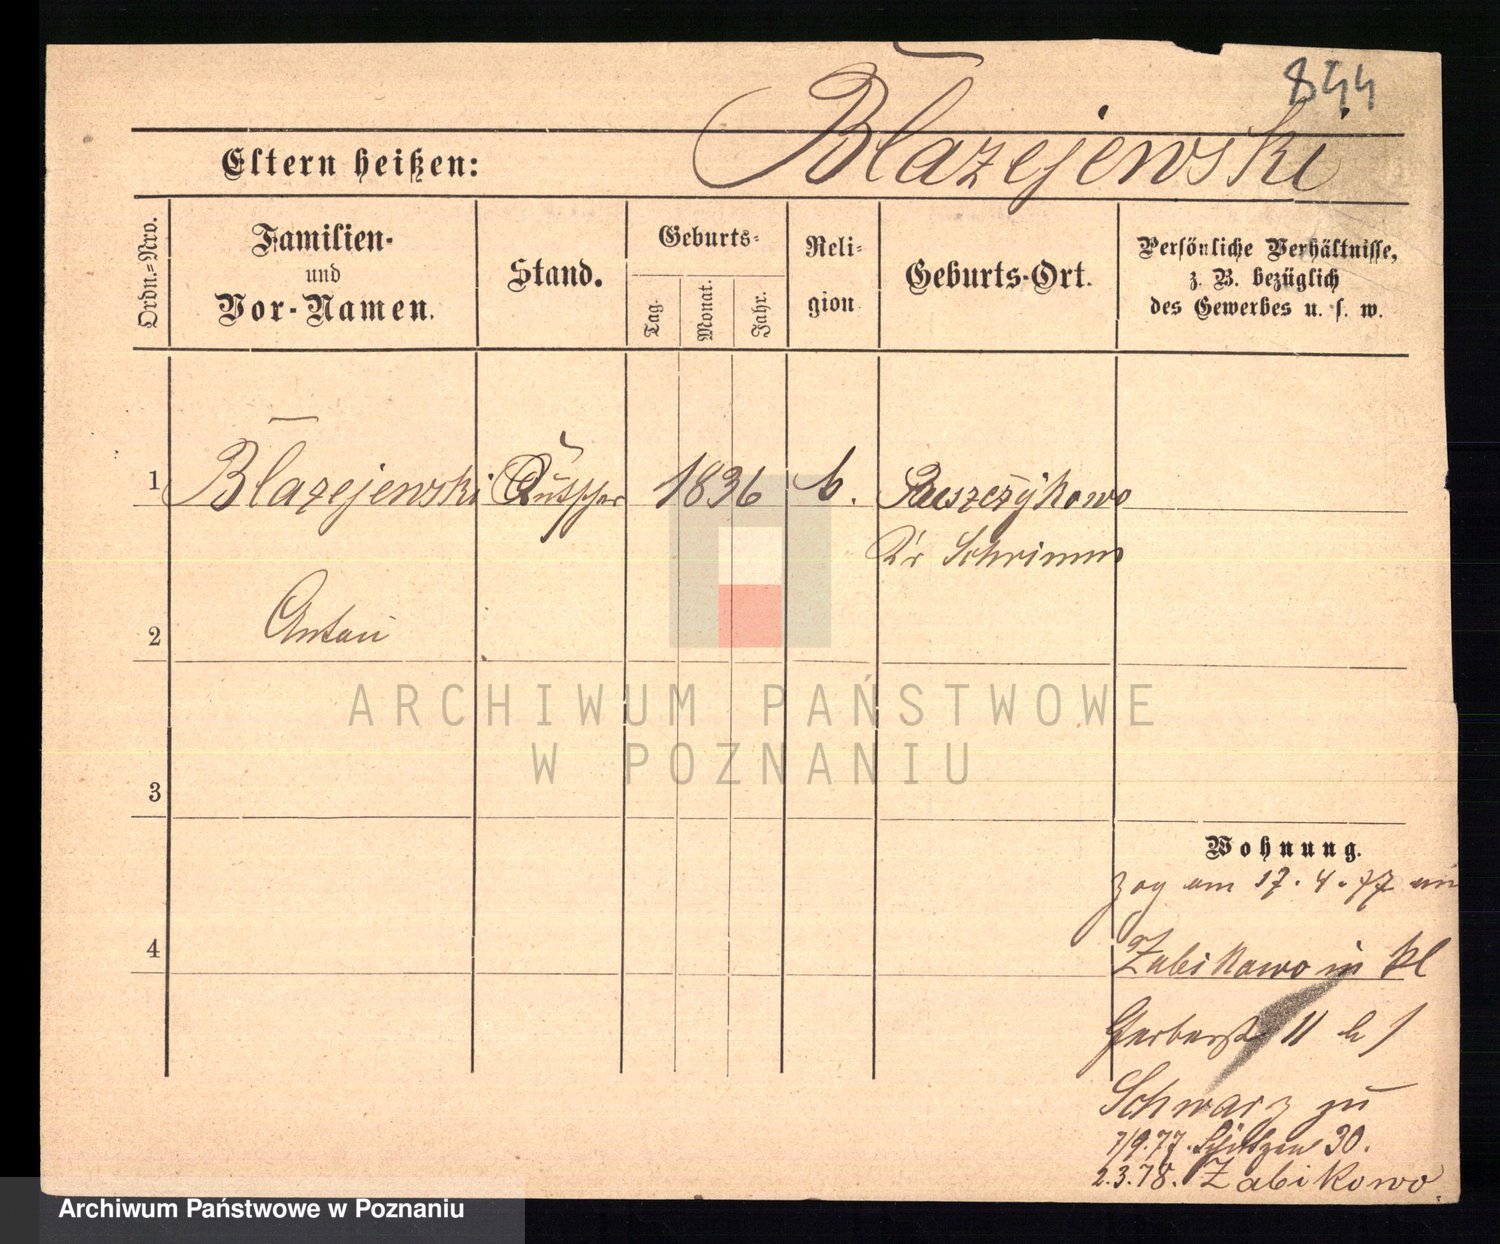 844
Błazejewski
Eltern heißen:
Ordn.=Nro.
Familien-
und
Vor-Namen.
Stand.
Geburts-
Tag.
Monat.
Jahr.
Reli-
gion
Geburts-Ort.
Persönliche Verhältnisse,
z. B. bezüglich
des Gewerbes u. s. w.
1 Błazejewski Kutscher 1836 k.
Kr Schrimm
2 Anton
3
Wohnung.
zog am 17.4.77 von
4 Zabikowo in kl
Gerberstr 11 b/
Schwarz zu
7/9.77. Schützen 30.
2.3.78. Zabikowo
ARCHIWUM PAŃSTWOWE
W POZNANIU
Archiwum Państwowe w Poznaniu